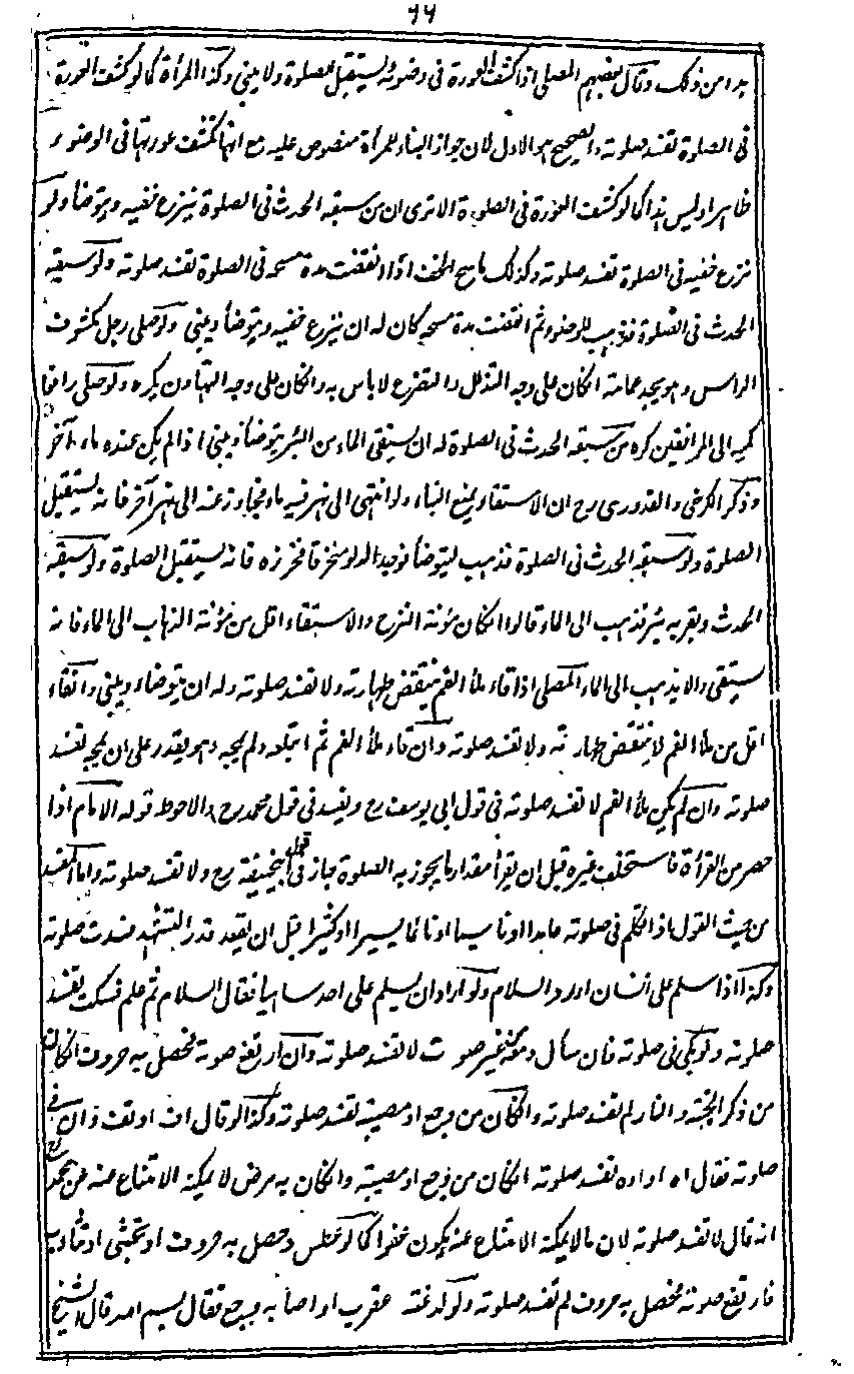 ٦٦
بدا من ذلك وقال بعضهم المصلي اذا كشف العورة في وضوئه يستقبل الصلوة ولا يبني وكذا المرأة كما لو كشفت العورة
في الصلوة تفسد صلوته والصحيح هو الاول لان جواز البناء للمرأة منصوص عليه مع انها تكشف عورتها في الوضوء
ظاهرا وليس هذا كما لو كشفت العورة في الصلوة الا ترى ان من سبقه الحدث في الصلوة ينزع خفيه ويتوضأ ولو
نزع خفيه في الصلوة تفسد صلوته وكذلك ماسح الخف اذا انقضت مدة مسحه في الصلوة تفسد صلوته ولو سبقه
الحدث في الصلوة فذهب للوضوء ثم انقضت مدة مسحه كان له ان ينزع خفيه ويتوضأ ويبني ولو صلى رجل مكشوف
الراس وهو يجد عمامة ان كان على وجه التذلل والتضرع لا باس به وان كان على وجه التهاون يكره ولو صلى رافعا
كميه الى المرافقين كره من سبقه الحدث في الصلوة له ان يستقي الماء من البئر ويتوضأ ويبني اذا لم يكن عنده ماء آخر
وذكر الكرخي والقدوري رح ان الاستقاء يمنع البناء ولو انتهى الى نهر فيه ماء فجاوز عنه الى نهر آخر فانه يستقبل
الصلوة ولو سبقه الحدث في الصلوة فذهب ليتوضأ فوجد الدلو منخرقا فخرزه فانه يستقبل الصلوة ولو سبقه
الحدث وبقربه بئر فذهب الى الماء قالوا ان كان مؤنة النزح والاستقاء اقل من مؤنة الذهاب الى الماء فانه
يستقي والا يذهب الى الماء المصلي اذا قاء ملأ الفم ينتقض طهارته ولا تفسد صلوته وله ان يتوضاء ويبني وان قاء
اقل من ملأ الفم لا ينتقض طهارته ولا تفسد صلوته وان قاء ملأ الفم ثم ابتلعه ولم يمجه وهو يقدر على ان يمجه تفسد
صلوته وان لم يكن ملأ الفم لا تفسد صلوته في قول ابي يوسف رح ويفسد في قول محمد رح والاحوط قوله الامام اذا
حصر من القرأة فاستخلف غيره قبل ان يقرأ مقدار ما يجوز به الصلوة جاز في قول ابيحنيفة رح ولا تفسد صلوته واما المفسد
من حيث القول اذا تكلم في صلوته عامدا او ناسيا او نائما يسيرا او كثيرا قبل ان يقعد قدر التشهد فسدت صلوته
وكذا اذا سلم على انسان او رد السلام ولو اراد ان يسلم على احد ساهيا فقال السلام ثم علم فسكت تفسد
صلوته ولو بكى في صلوته فان سال دمعه بغير صوت لا تفسد صلوته وان ارتفع صوته فحصل به حروف ان كان
من ذكر الجنة والنار لم تفسد صلوته وان كان من وجع او مصيبة تفسد صلوته وكذا لو قال اف او تف وان في
صلوته فقال اه او اوه تفسد صلوته ان كان من وجع او مصيبة وان كان به مرض لا يمكنه الامتناع عنه فعن محمد رح
انه قال لا تفسد صلوته لان ما لا يمكنه الامتناع عنه يكون عفوا كما لو عطس وحصل به حروف او تجشى او تثاوب
فارتفع صوته فحصل به حروف لم تفسد صلوته ولو لدغته عقرب او اصابه وجع فقال بسم الله قال الشيخ